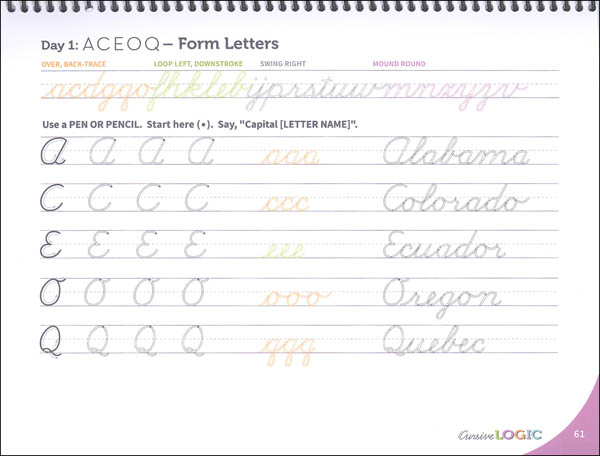 Day 1: A C E O Q – Form Letters
OVER, BACK-TRACE LOOP LEFT, DOWNSTROKE SWING RIGHT MOUND ROUND
acdgqofhklebijprstuuwmnzyzv
Use a PEN OR PENCIL. Start here (▪). Say, "Capital [LETTER NAME]".
A A A A aaa Alabama
C C C C ccc Colorado
E E E E eee Ecuador
O O O O ooo Oregon
Q Q Q Q qqq Quebec
Cursive LOGIC 61